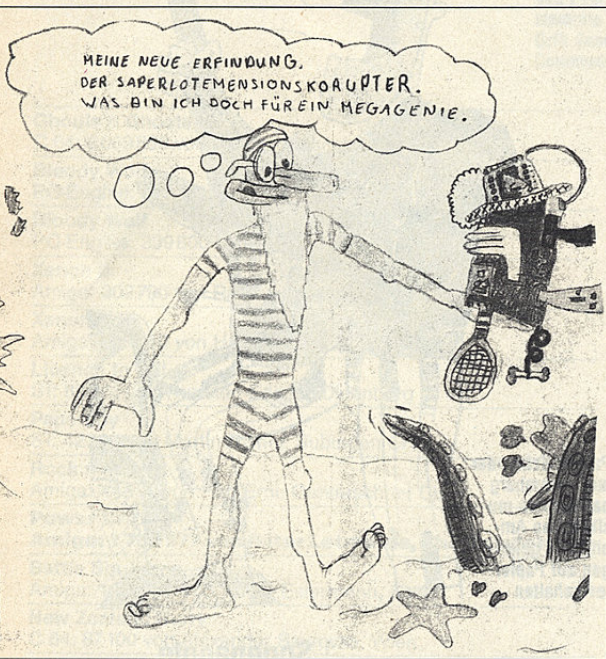 MEINE NEUE ERFINDUNG.
DER SAPERLOTEMENSIONSKORUPTER.
WAS BIN ICH DOCH FÜR EIN MEGAGENIE.